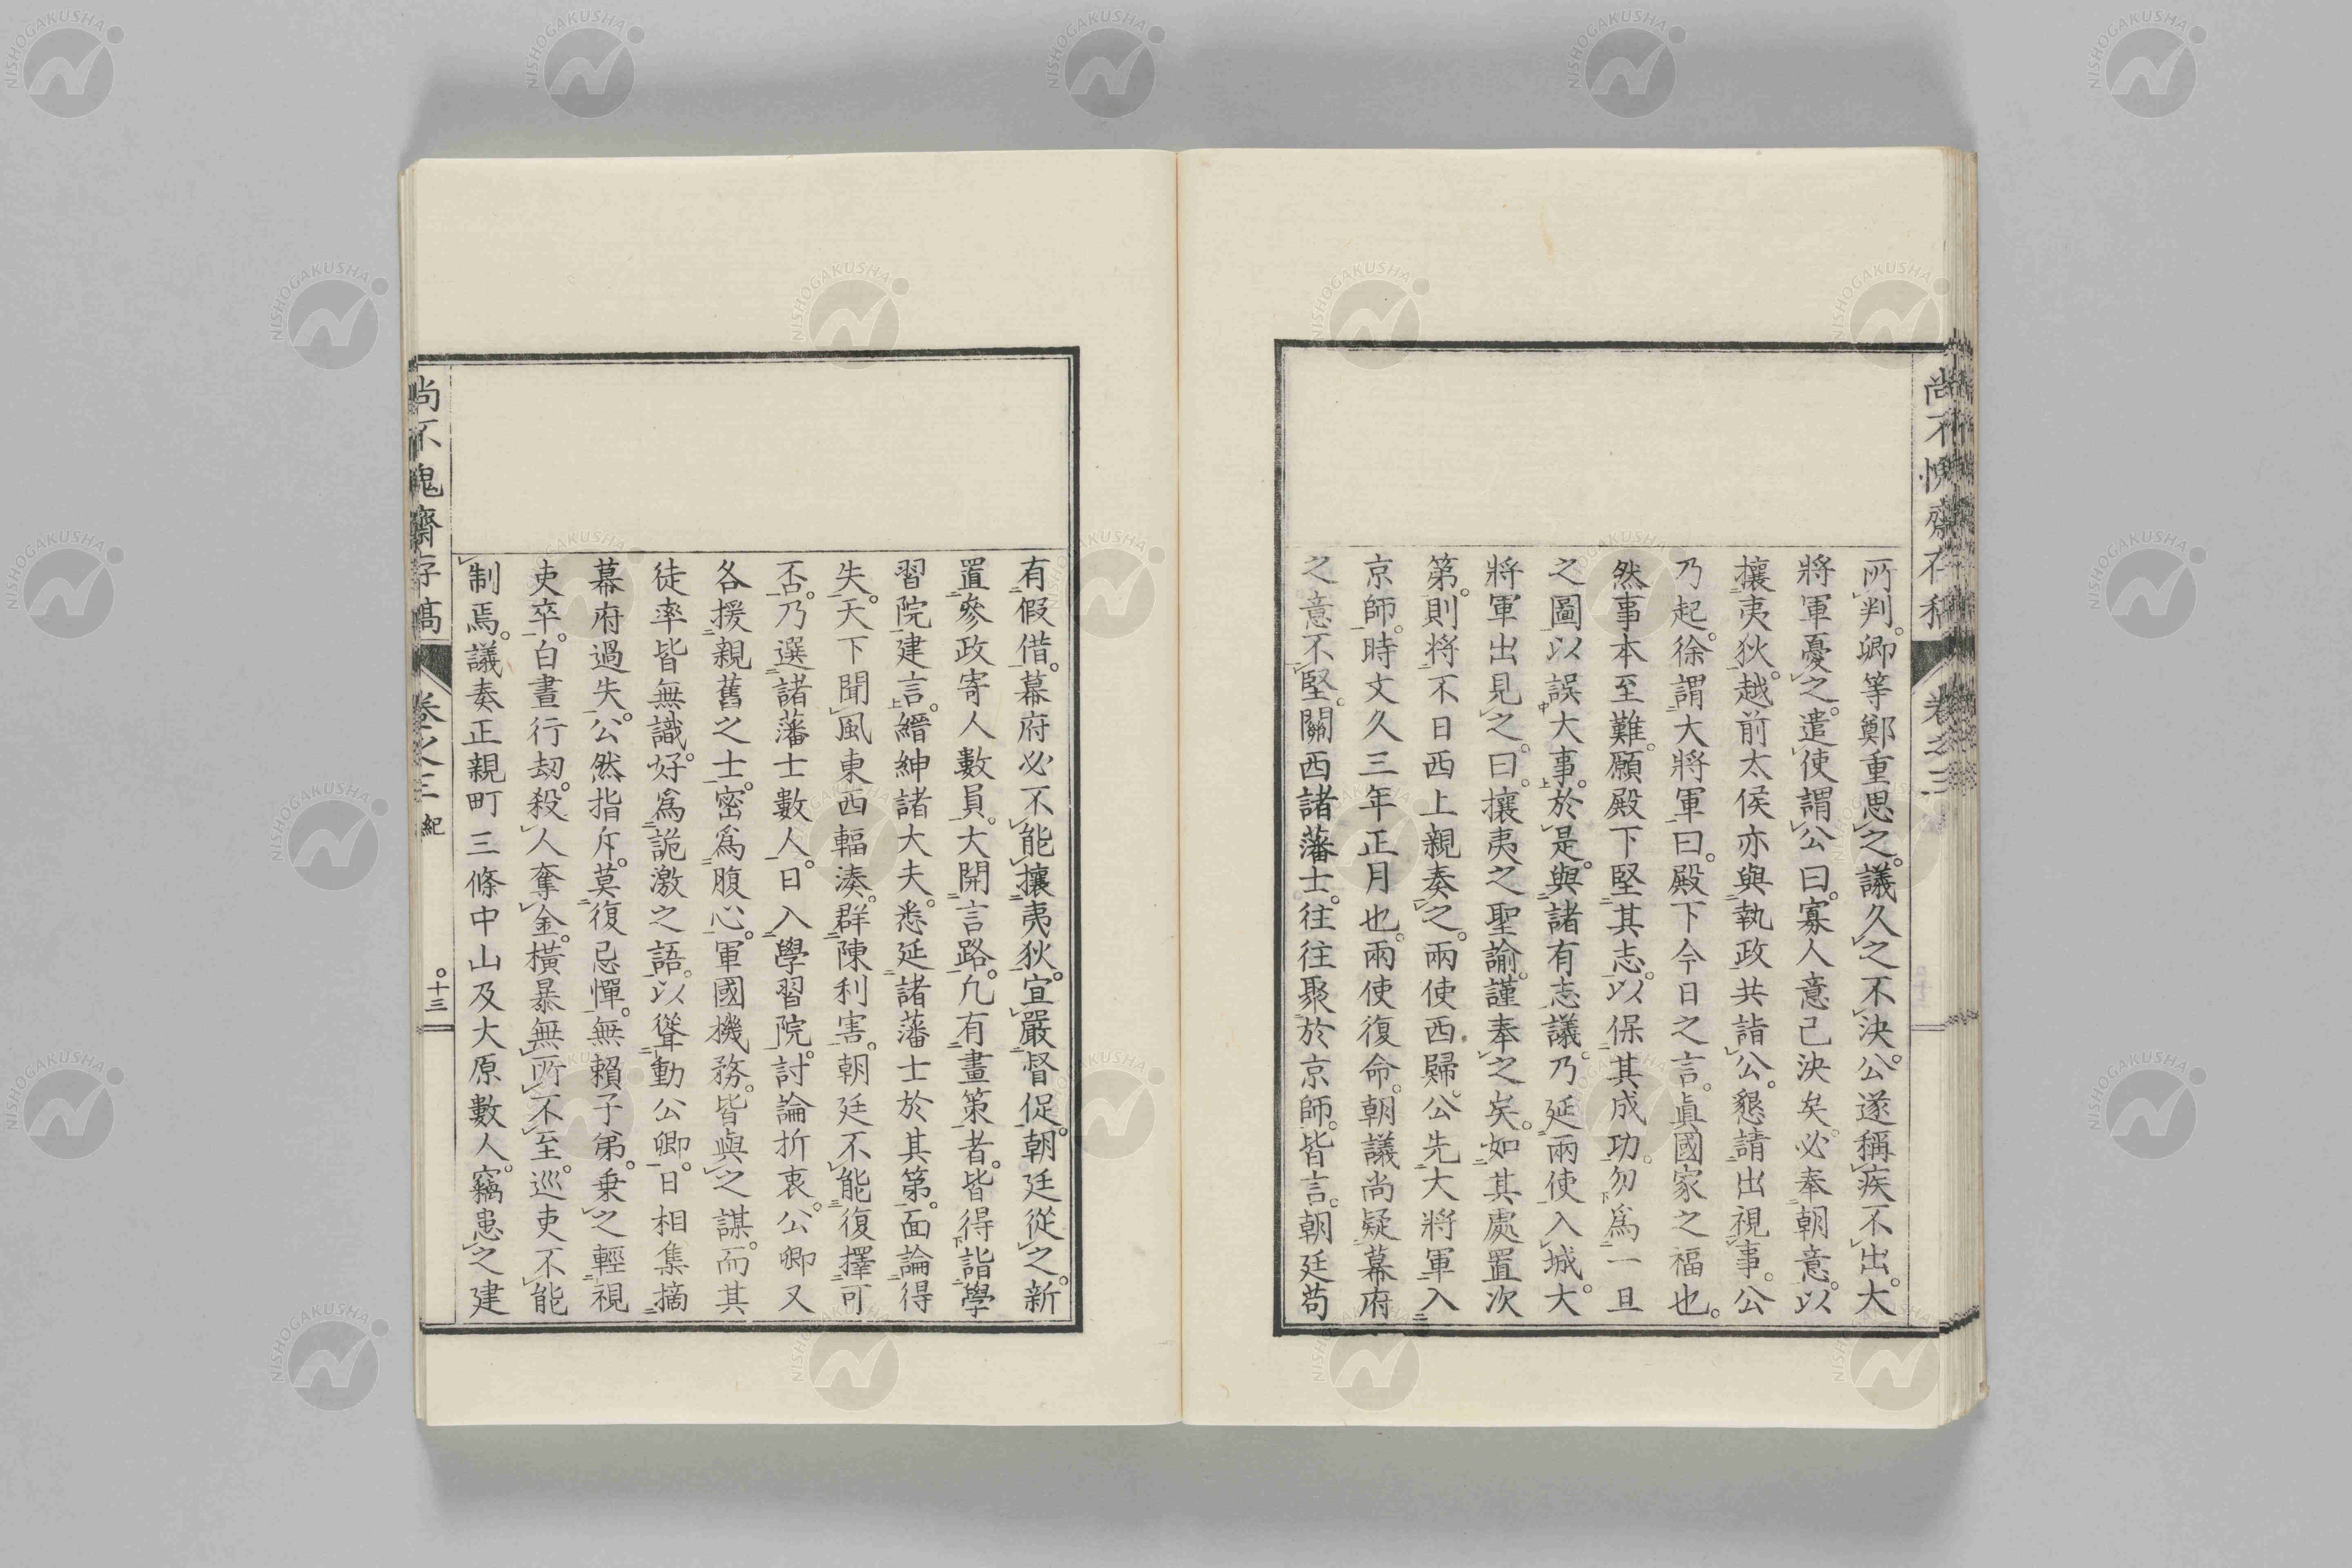 所判。卿等鄭重思之。議久之不決。公遂稱疾不出。大
將軍憂之。遣使謂公曰。寡人意已決矣。必奉朝意。以
攘夷狄。越前太侯亦與執政共詣公。懇請出視事。公
乃起。徐謂大將軍曰。殿下今日之言。眞國家之福也。
然事本至難。願殿下堅其志。以保其成功。勿爲一旦
之圖以誤大事。於是。與諸有志議。乃延兩使入城。大
將軍出見之。曰。攘夷之聖諭。謹奉之矣。如其處置次
第。則將不日西上親奏之。兩使西歸。公先大將軍入
京師。時文久三年正月也。兩使復命。朝議尚疑幕府
之意不堅。關西諸藩士。往往聚於京師。皆言。朝廷苟
有假借。幕府必不能攘夷狄。宜嚴督促。朝廷從之。新
置參政寄人數員。大開言路。凡有畫策者。皆得詣學
習院建言。縉紳諸大夫。悉延諸藩士於其第。面論得
失。天下聞風東西輻湊。群陳利害。朝廷不能復擇可
否。乃選諸藩士數人。日入學習院。討論折衷。公卿又
各援親舊之士。密爲腹心。軍國機務。皆與之謀。而其
徒率皆無識。好爲詭激之語。以聳動公卿。日相集摘
幕府過失。公然指斥。莫復忌憚。無賴子弟。乗之輕視
吏卒。白晝行劫。殺人奪金。橫暴無所不至。巡吏不能
制焉。議奏正親町三條中山及大原數人。竊患之建
尚不愧齋存稿
卷之三
紀
十三
NISHOGAKUSHA